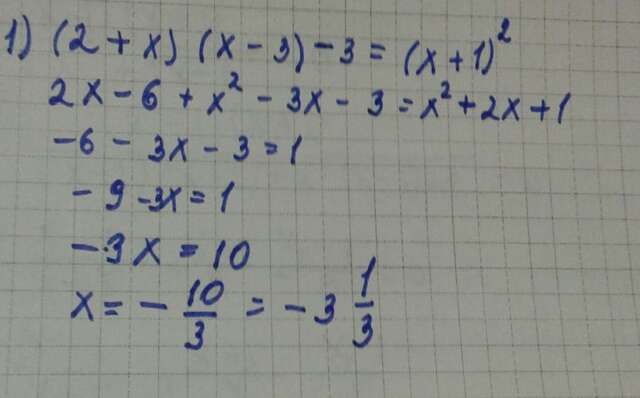 1) (2 + x) (x - 3) - 3 = (x + 1)²
2x - 6 + x² - 3x - 3 = x² + 2x + 1
-6 - 3x - 3 = 1
-9 - 3x = 1
-3x = 10
x = - 10/3 = -3 1/3